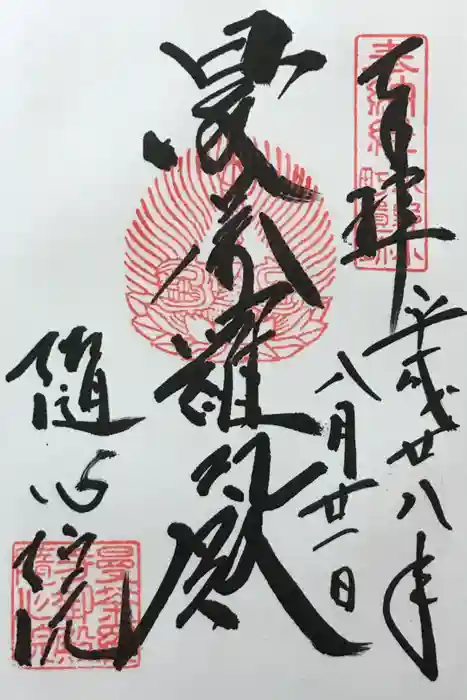 奉拝
平成廿八年
八月廿一日
曼荼羅殿
随心院